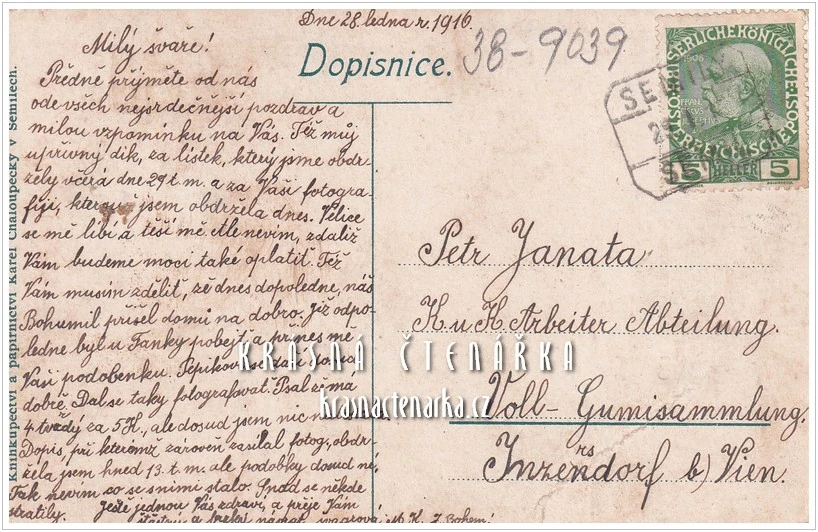 Dne 28. ledna r. 1916.
38-9039
Milý švaře!
Dopisnice.
Předně přijměte od nás
ode všech nejsrdečnější pozdrav a
milou vzpomínku na Vás. Též můj
upřívný dík, za lístek, který jsme obdr-
žely včera dne 27 t. m. a za Vaši fotogra-
fiji, kterou jsem obdržela dnes. Velice
se mě líbí a těší mě atle nevím, zdaliž
Vám budeme moci také oplatit. Též
Vám musím zdělit, že dnes dopoledne, náš
Bohumil přišel domů na dobro. Již odpo-
ledne byl u Fanky pobejt a přines mě
Vaši podobenku. Pepíkovi se daří
dobře. Dal se taky fotografovat. Psal že má
4 tvrdý za 5 K, ale dosud jsem nic
Dopis, při kteromž zároveň zasílal fotog, obdr-
žela jsem hned 13. t. m. ale podobky dosud né,
Tak nevím co se s nimi stalo. Snad se někde
stratily. Ještě jednou Vás zdraví, a přeje Vám
šťastný a brzký návrat švagrová
Knihkupectví a papírnictví Karel Chaloupecký v Semilech.
Petr Janata
K u K Arbeiter Abteilung.
Voll- Gumisammlung
Inzersdorf b) Vien.
KRASNÁ ČTENÁŘKA
krasnactenarka.cz
1908
5 HELLER 5